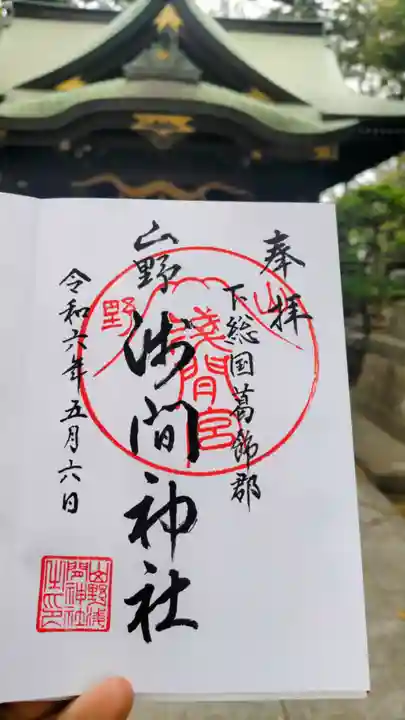 奉拝
下総国葛飾郡
山野浅間神社
令和六年五月六日
山野
淺間宮
山野浅
間神社
之印